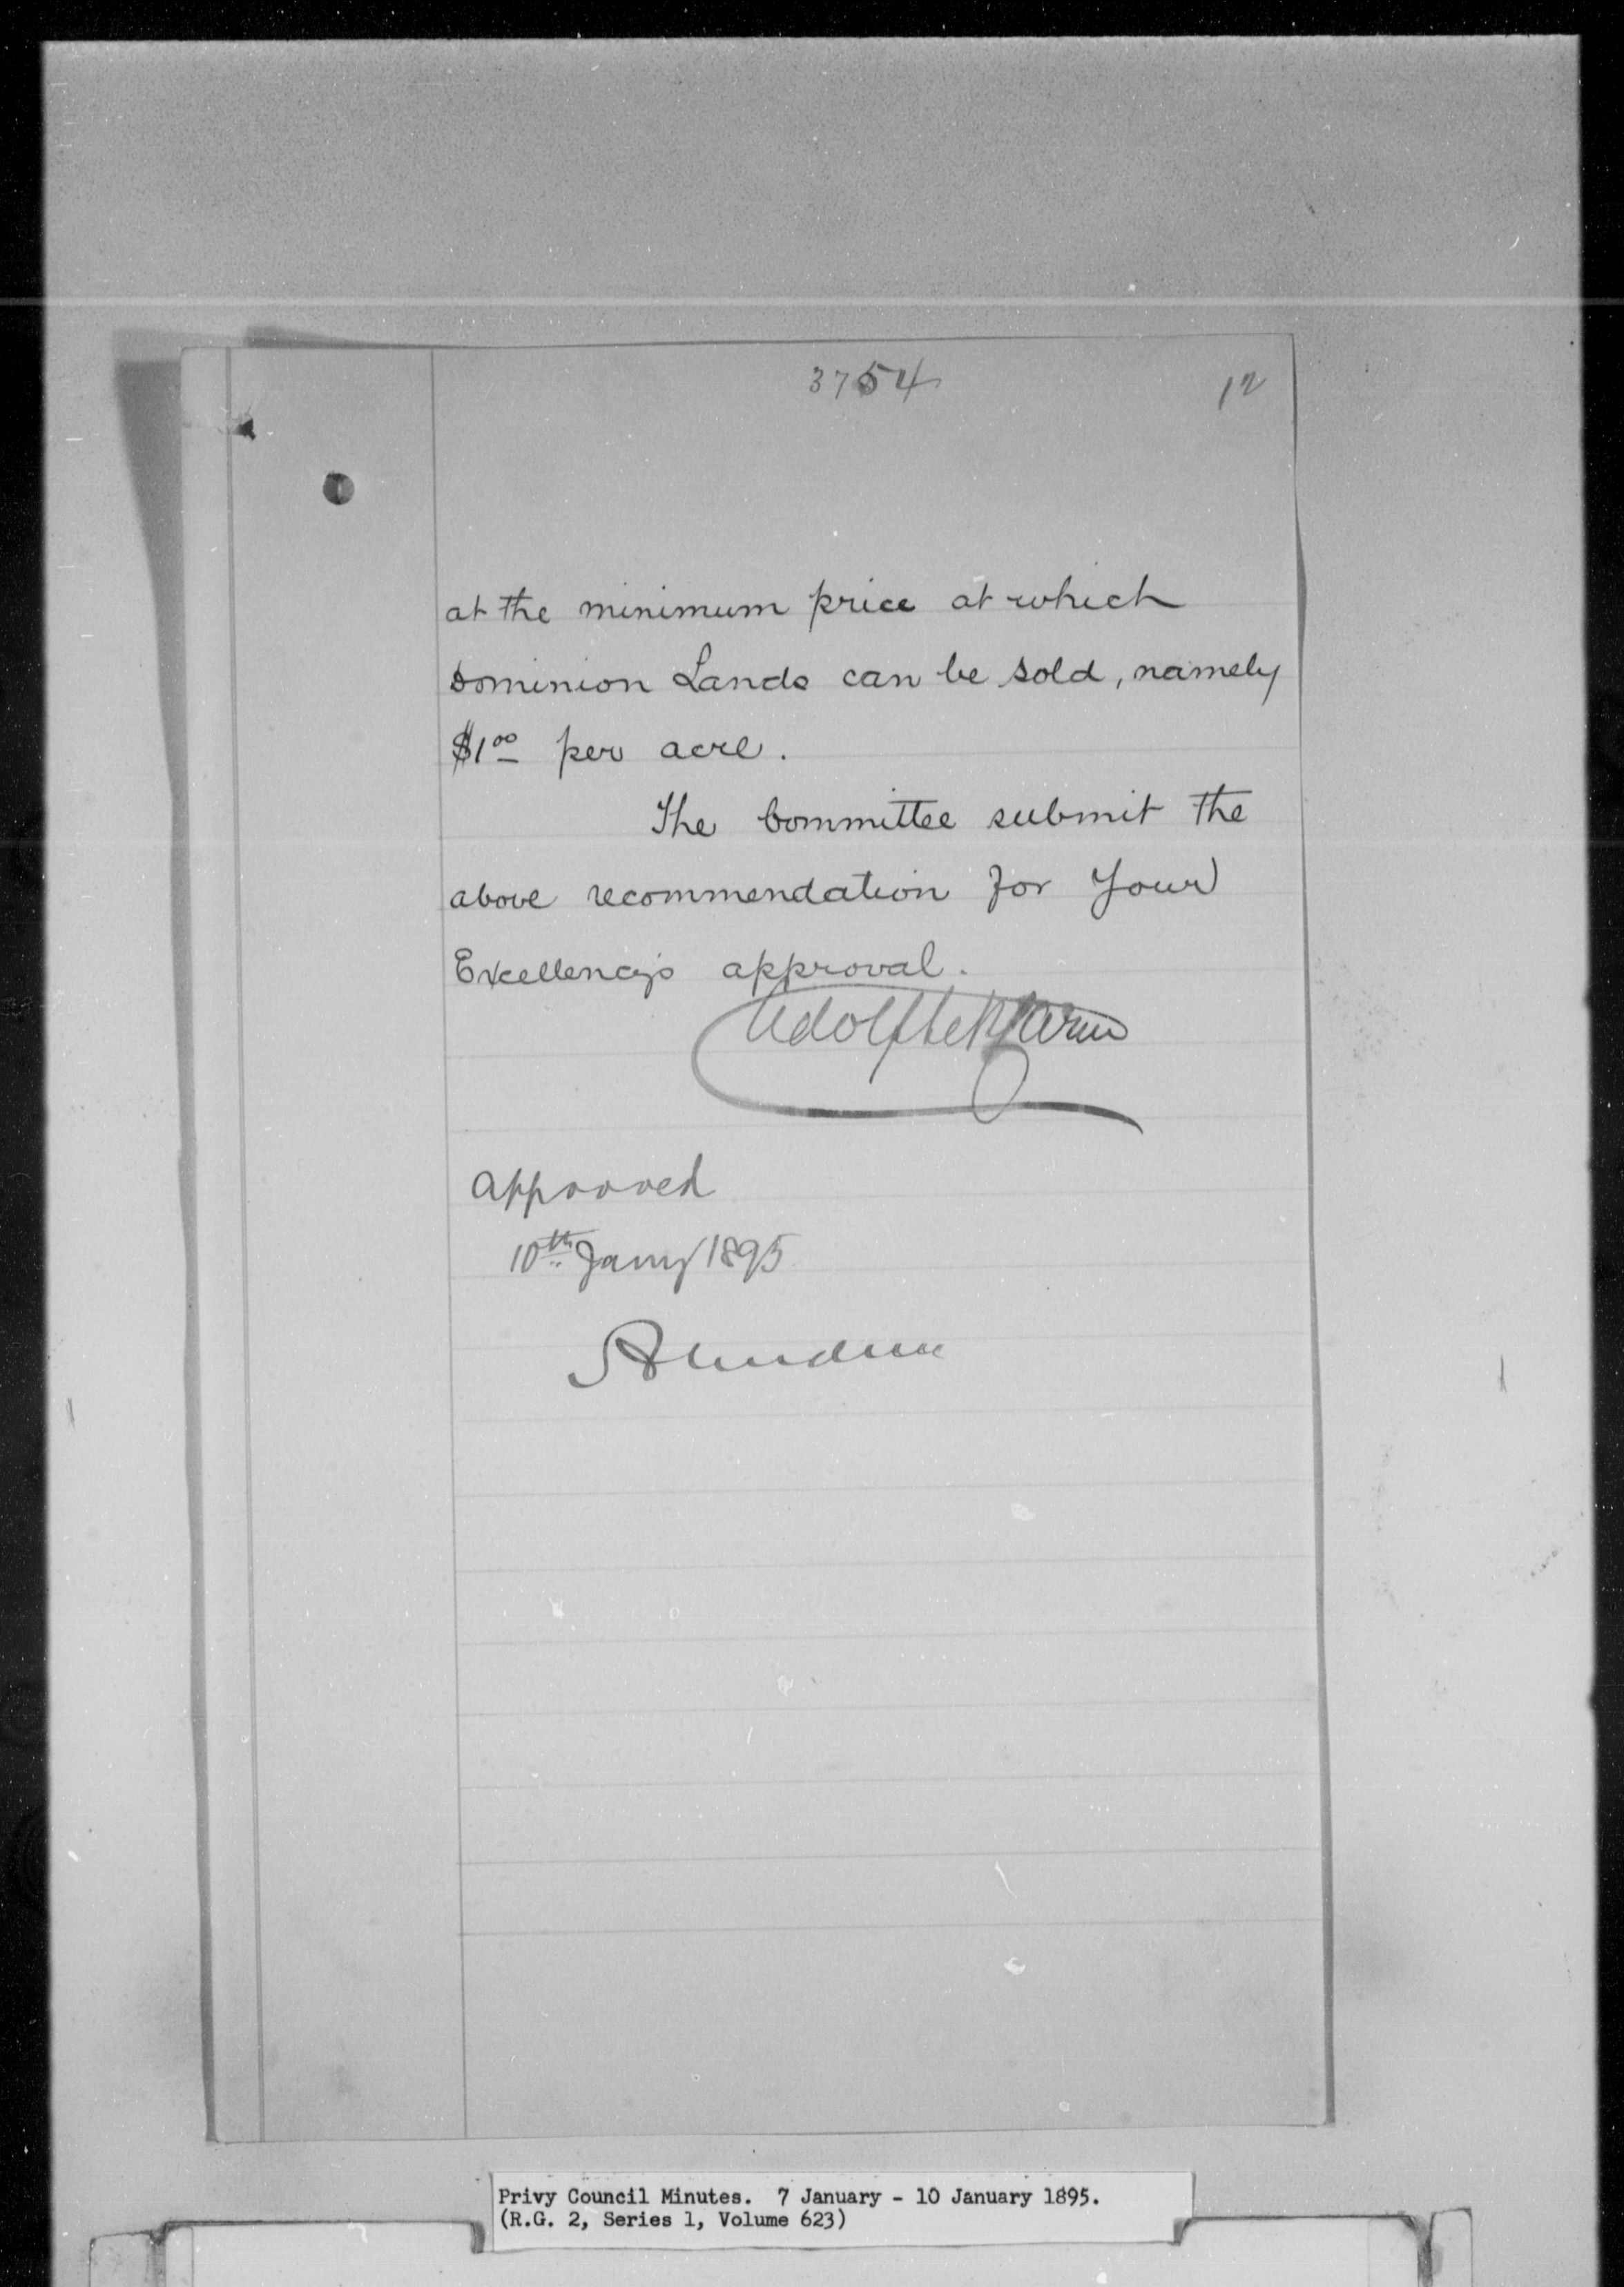 3754 12
at the minimum price at which
Dominion Lands can be sold, namely
$1.00 per acre.
The Committee submit the
above recommendation for Your
Excellency's approval.
Adolphe P Caron
Approved
10th Jany 1895
Aberdeen
Privy Council Minutes. 7 January - 10 January 1895.
(R.G. 2, Series 1, Volume 623)